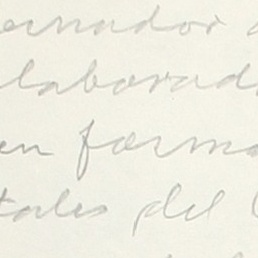 ernador
laborad
en forma
tales del